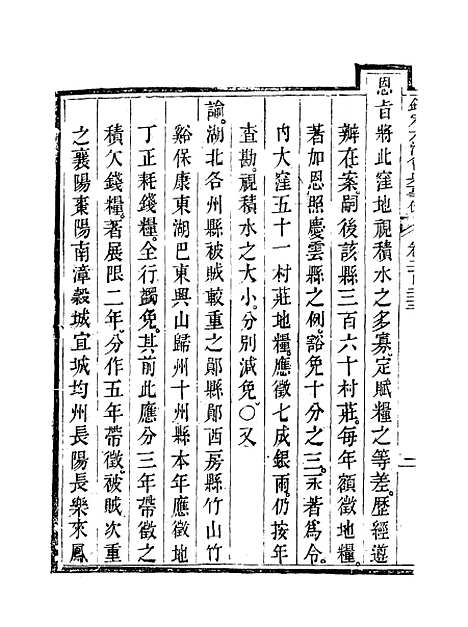 恩旨將此窪地視積水之多寡定賦糧之等差。歷經遵
辦在案。嗣後該縣三百六十村莊。每年額徵地糧。
著加恩照慶雲縣之例。豁免十分之三。永著爲令。
內大窪五十一村莊地糧。應徵七成銀兩。仍按年
查勘。視積水之大小。分別減免。○又
諭。湖北各州縣被賊較重之鄖縣鄖西房縣竹山竹
谿保康東湖巴東興山歸州十州縣本年應徵地
丁正耗錢糧。全行蠲免。其前此應分三年帶徵之
積欠錢糧。著展限二年。分作五年帶徵。被賊次重
之襄陽棗陽南漳穀城宜城均州長陽長樂來鳳